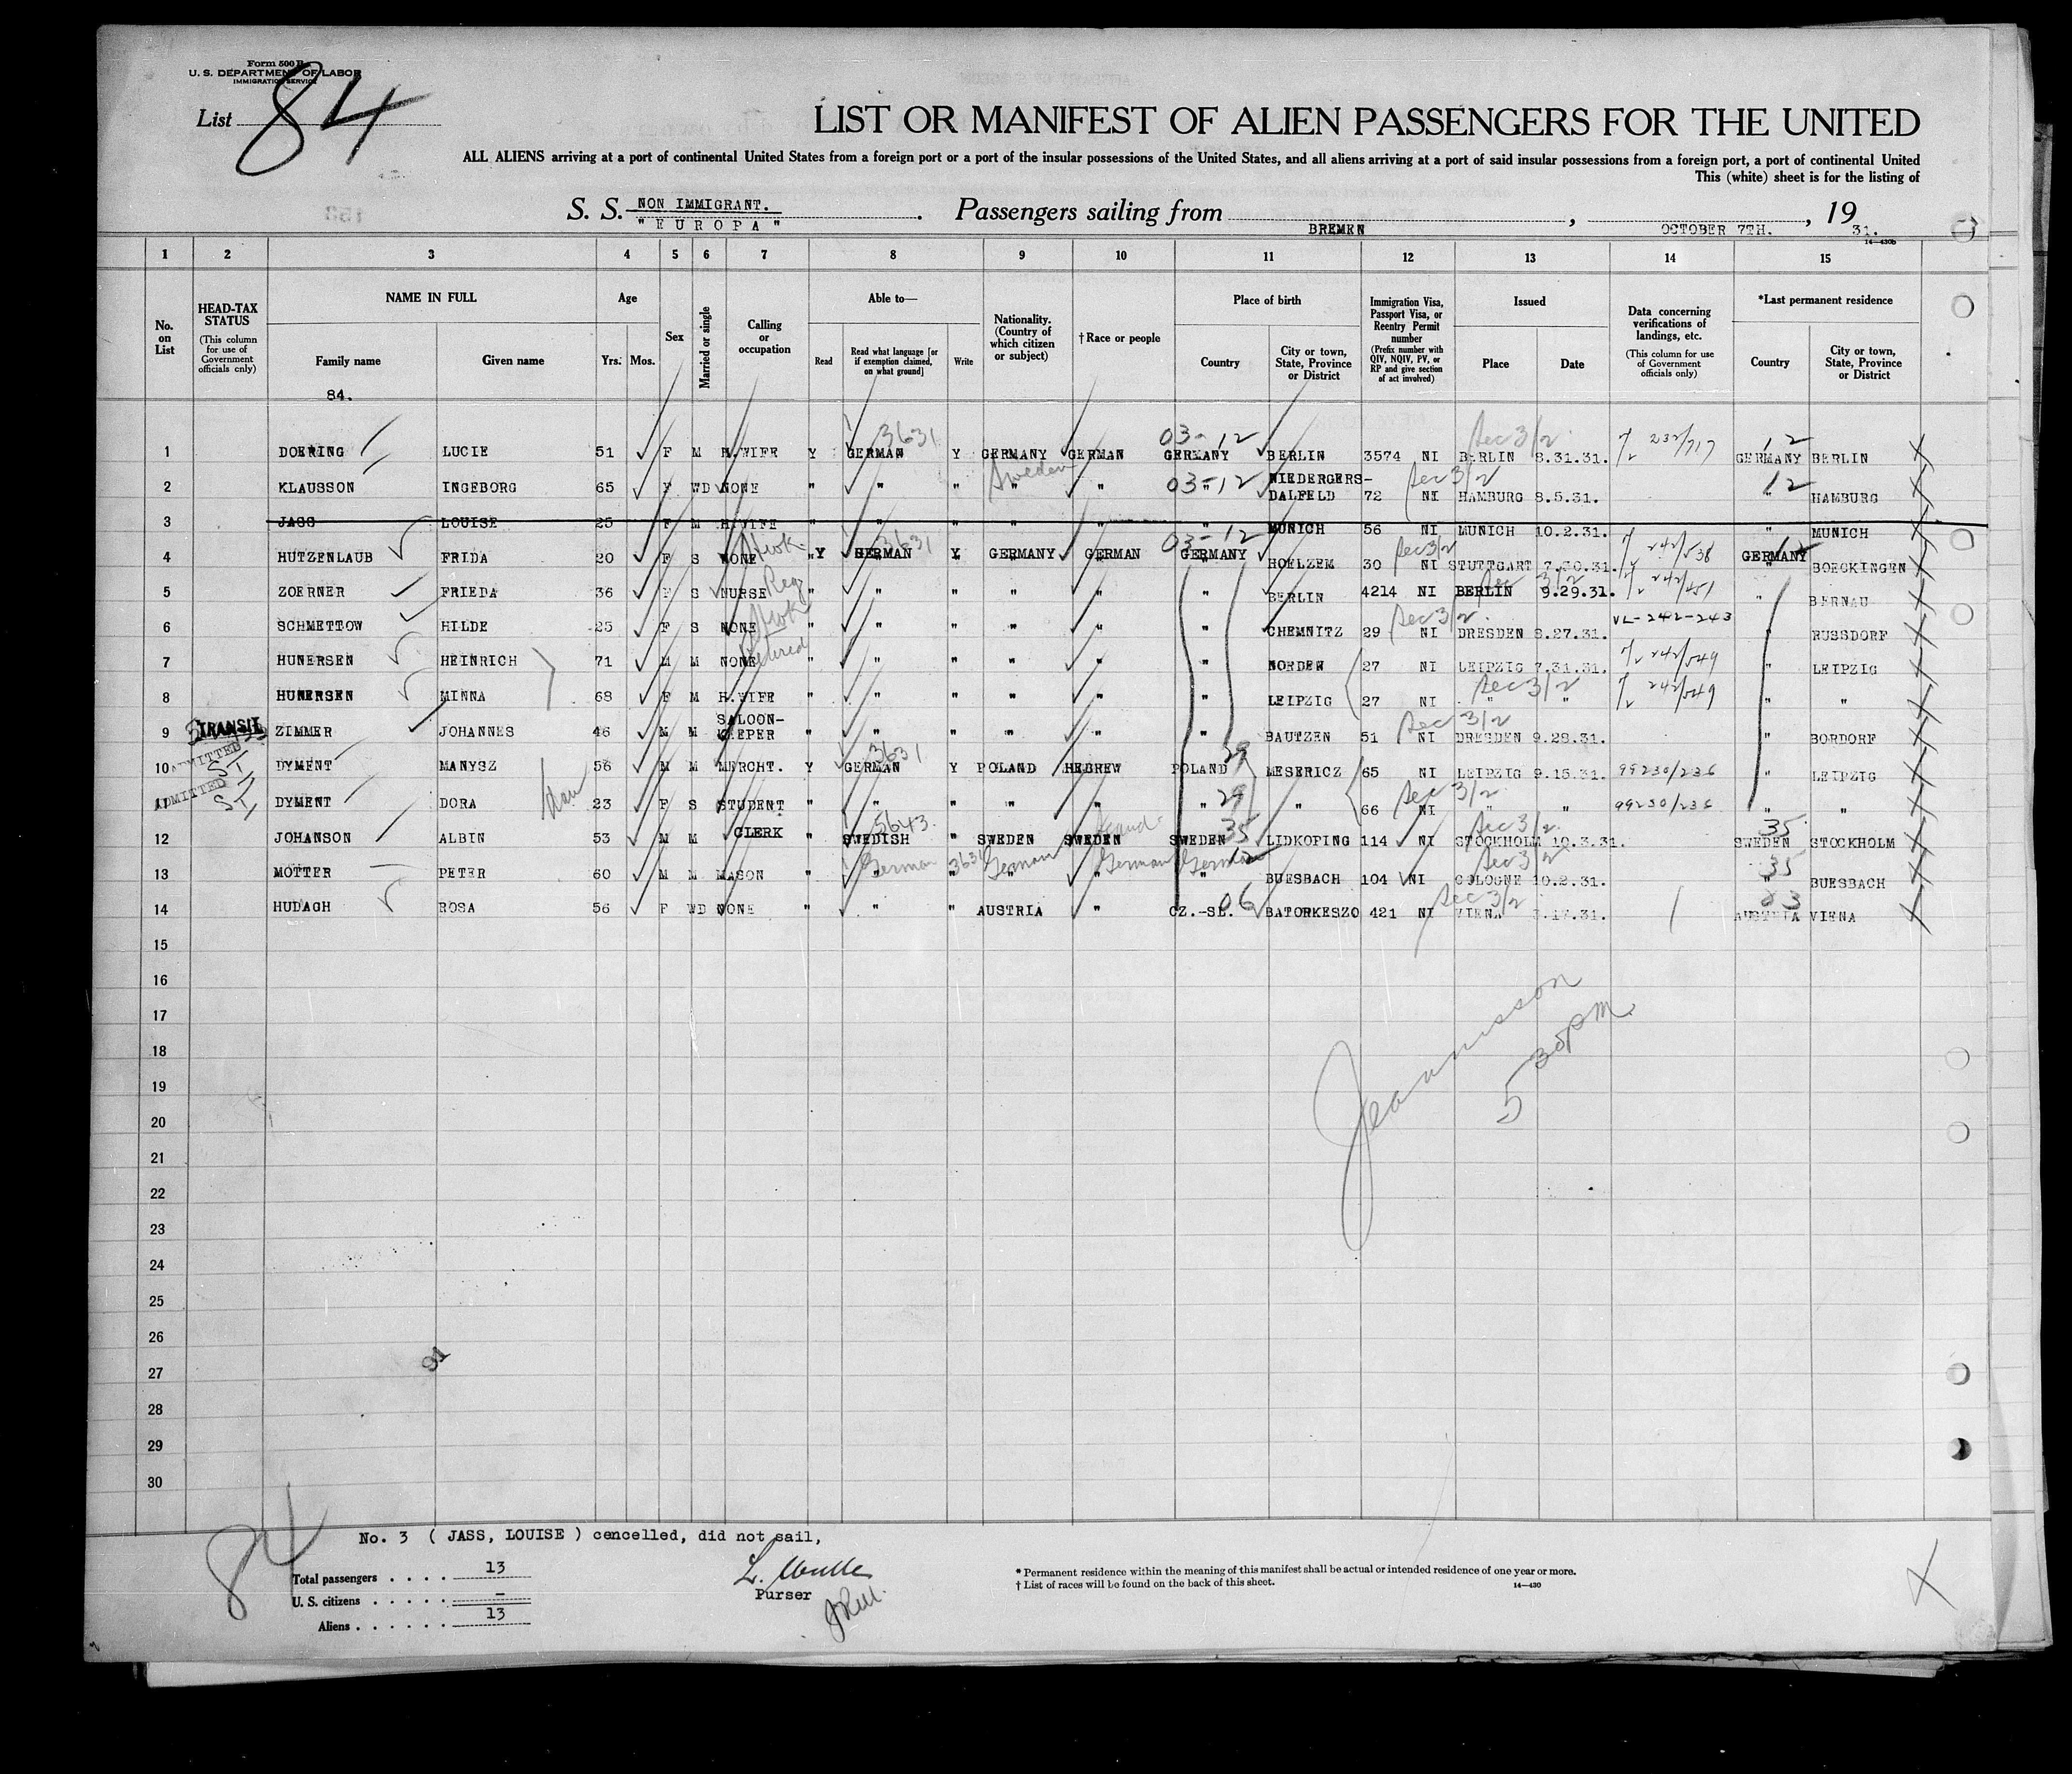 Form 500 B
U. S. DEPARTMENT OF LABOR
IMMIGRATION SERVICE
List 84
LIST OR MANIFEST OF ALIEN PASSENGERS FOR THE UNITED
ALL ALIENS arriving at a port of continental United States from a foreign port or a port of the insular possessions of the United States, and all aliens arriving at a port of said insular possessions from a foreign port, a port of continental United
This (white) sheet is for the listing of
S. S. NON IMMIGRANT. "EUROPA" Passengers sailing from BREMEN, OCTOBER 7TH., 19 31.
14—430b
1 2 3 4 5 6 7 8 9 10 11 12 13 14 15
No. on List
HEAD-TAX STATUS (This column for use of Government officials only)
NAME IN FULL
Family name
Given name
84.
Age
Yrs. Mos.
Sex
Married or single
Calling or occupation
Able to—
Read
Read what language [or if exemption claimed, on what ground]
Write
Nationality. (Country of which citizen or subject)
† Race or people
Place of birth
Country
City or town, State, Province or District
Immigration Visa, Passport Visa, or Reentry Permit number (Prefix number with QIV, NQIV, PV, or RP and give section of act involved)
Issued
Place
Date
Data concerning verifications of landings, etc. (This column for use of Government officials only)
*Last permanent residence
Country
City or town, State, Province or District
3631 03-12 Sec 3/2 12
1 DOERING LUCIE 51 F M H.WIFE Y GERMAN Y GERMANY GERMAN GERMANY BERLIN 3574 NI BERLIN 8.31.31. 232/717 GERMANY BERLIN
Sweden 03-12 Sec 3/2 12
2 KLAUSSON INGEBORG 65 F WD NONE " " " " " " NIEDERGERS-DALFELD 72 NI HAMBURG 8.5.31. " HAMBURG
3 JASS LOUISE 25 F M H.WIFE " " " " " " MUNICH 56 NI MUNICH 10.2.31. " MUNICH
3631 03-12 Sec 3/2
4 HUTZENLAUB FRIDA 20 F S NONE Y GERMAN Y GERMANY GERMAN GERMANY HOELZEM 30 NI STUTTGART 7.30.31. 242/538 GERMANY BOECKINGEN
Reg Sec 3/2
5 ZOERNER FRIEDA 36 F S NURSE " " " " " " BERLIN 4214 NI BERLIN 9.29.31. 242/451 " BERNAU
Sec 3/2
6 SCHMETTOW HILDE 25 F S NONE " " " " " " CHEMNITZ 29 NI DRESDEN 8.27.31. VL-242-243 " RUSSDORF
Retired
7 HUNERSEN HEINRICH 71 M M NONE " " " " " " NORDEN 27 NI LEIPZIG 7.31.31. 242/549 " LEIPZIG
Sec 3/2
8 HUNERSEN MINNA 68 F M H.WIFE " " " " " " LEIPZIG 27 NI " " 242/549 " "
TRANSIT Sec 3/2
9 ZIMMER JOHANNES 46 M M SALOON-KEEPER " " " " " " BAUTZEN 51 NI DRESDEN 9.28.31. " BORDORF
ADMITTED 3631 29
10 DYMENT MANYSZ 56 M M MERCHT. Y GERMAN Y POLAND HEBREW POLAND MESERICZ 65 NI LEIPZIG 9.15.31. 99230/236 " LEIPZIG
ADMITTED 29 Sec 3/2
11 DYMENT DORA 23 F S STUDENT " " " " " " " 66 NI " " 99230/236 " "
5643 Scand. 35 Sec 3/2 35
12 JOHANSON ALBIN 53 M M CLERK " SWEDISH " SWEDEN SWEDEN SWEDEN LIDKOPING 114 NI STOCKHOLM 10.3.31. SWEDEN STOCKHOLM
German 3631 German German German 12 Sec 3/2 35
13 MOTTER PETER 60 M M MASON " " " " " " BUESBACH 104 NI COLOGNE 10.2.31. " BUESBACH
06 Sec 3/2 03
14 HUDAGH ROSA 56 F WD NONE " " " AUSTRIA " CZ.-SL. BATORKESZO 421 NI VIENA AUSTRIA VIENA
15
16
17
18
19
20
21
22
23
24
25
26
27
28
29
30
5 30 PM
84
No. 3 ( JASS, LOUISE ) cencelled, did not sail,
Total passengers . . . . 13
U. S. citizens . . . . . –
Aliens . . . . . . 13
Purser
* Permanent residence within the meaning of this manifest shall be actual or intended residence of one year or more.
† List of races will be found on the back of this sheet.
14—430